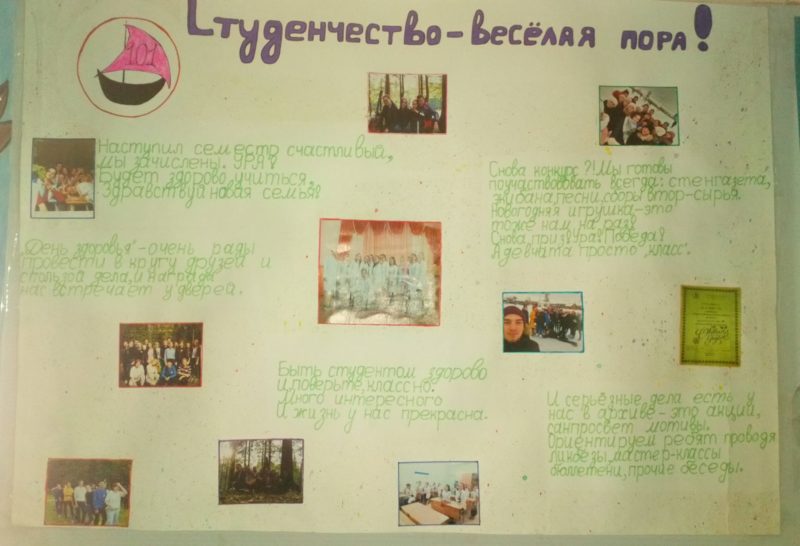 Студенчество-весёлая пора!
101
Наступил семестр счастливый,
мы зачислены. УРА!
Будет здорово учиться,
Здравствуй новая семья!
Снова конкурс?! Мы готовы
поучаствововать всегда: стенгазета,
экибана, песни, сборы втор-сырья.
Новогодняя игрушка-это
тоже нам на раз!
Снова приз! Ура! Победа!
А девчата просто "класс".
"День здоровья"-очень рады
провести в кругу друзей и
с пользой дела, и награда
нас встречает у дверей.
Быть студентом здорово
и поверьте, классно.
Много интересного
И жизнь у нас прекрасна.
И серьёзные дела есть у
нас в архиве-это акции,
санпросвет мотивы.
Ориентируем ребят проводя
ликбезы, мастер-классы
бюллетени, прочие беседы.